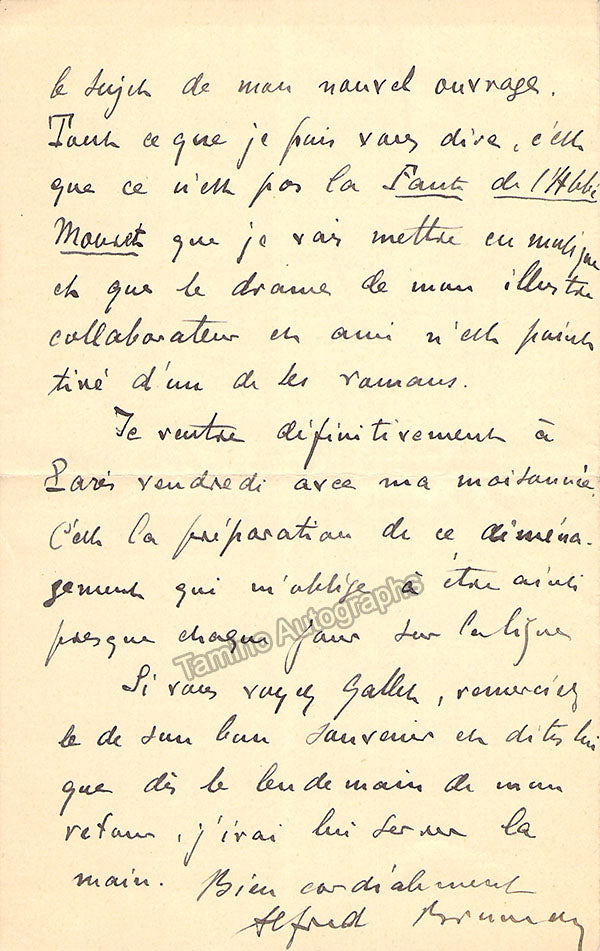 le sujet de mon nouvel ouvrage.
Tout ce que je puis vous dire, c'est
que ce n'est pas la Faute de l'Abbé
Mouret que je vais mettre en musique
et que le drame de mon illustre
collaborateur et ami n'est point
tiré d'un de ses romans.
Je rentre définitivement à
Paris vendredi avec ma maisonnée.
C'est la préparation de ce déména-
gement qui m'oblige à être ainsi
presque chaque jour sur la ligne
Tamino Autographs
Si vous voyez Gallet, remerciez
le de son bon souvenir et dites lui
que dès le lendemain de mon
retour, j'irai lui serrer la
main. Bien cordialement
Alfred Bruneau